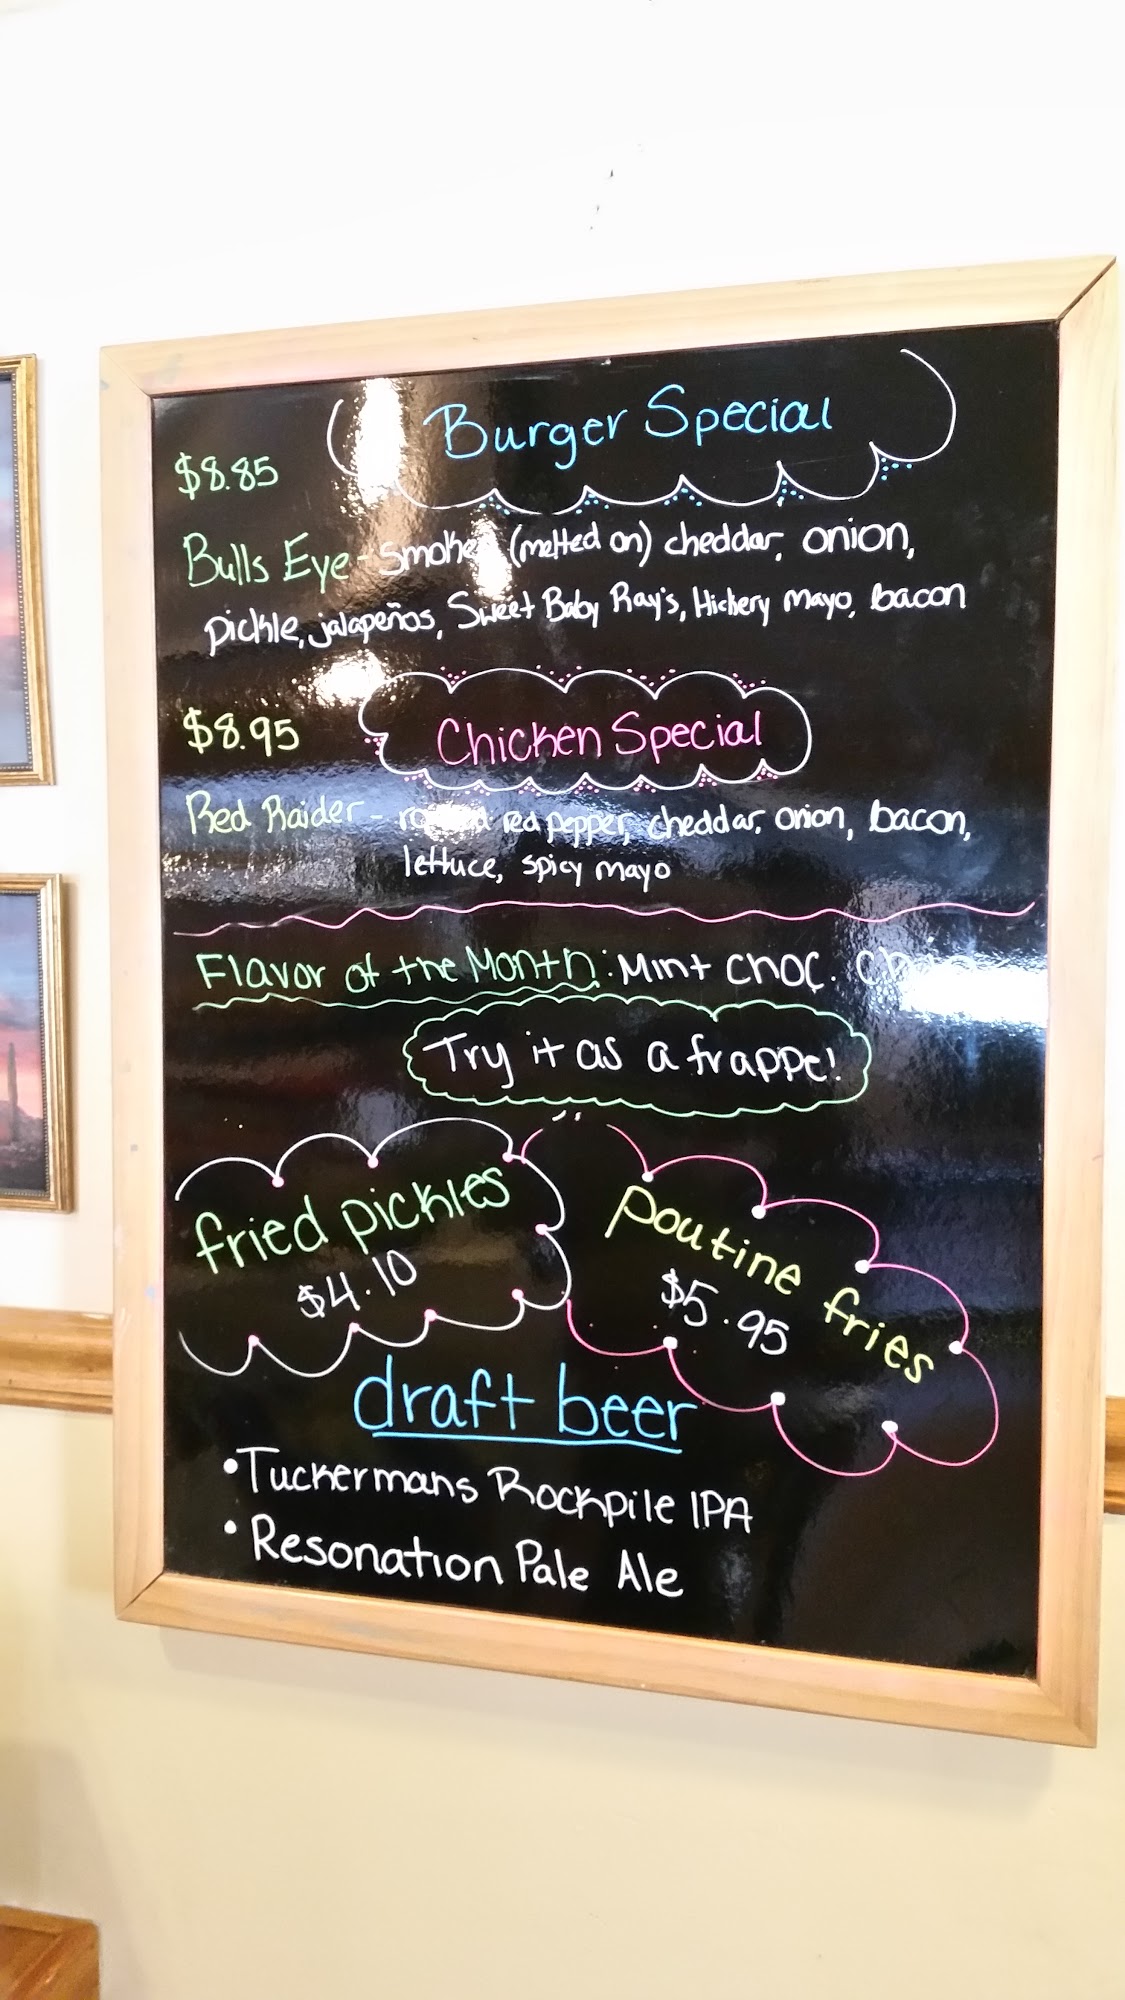 Burger Special
$8.85
Bulls Eye - Smoked (melted on) cheddar, onion,
pickle, jalapeños, Sweet Baby Ray's, Hickery Mayo, bacon
$8.95
Chicken Special
Red Raider - red pepper, cheddar, onion, bacon,
lettuce, spicy mayo
Flavor of the Month: Mint Choc.
Try it as a frappe!
fried pickles
$4.10
poutine fries
$5.95
draft beer
• Tuckermans Rockpile IPA
• Resonation Pale Ale